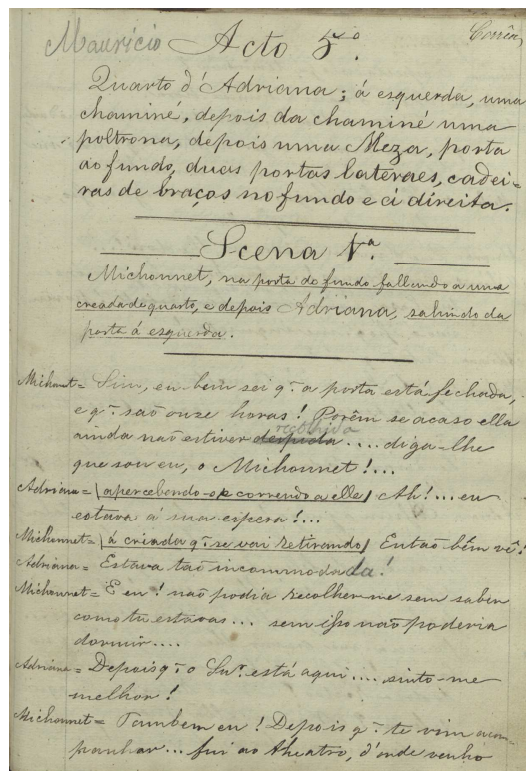 Mauricio Acto 5º. Corrêa
Quarto d'Adriana; á esquerda, uma
chaminé, depois da chaminé uma
poltrona, depois uma Meza, porta
ao fundo, duas portas lateraes, cadei=
ras de braços no fundo e á direita.
Scena 1ª.
Michonnet, na porta do fundo fallando a uma
creada de quarto, e depois Adriana, sahindo da
porta á esquerda.
Michonet= Sim, eu bem sei q.~ a porta está fechada,
e q.~ são onze horas! Porêm se acaso ella
ainda não estiver despida recolhida .... diga-lhe
que sou eu, o Michonnet!...
Adriana= (apercebendo-o e correndo a elle) Ah!... eu
estava á sua espera!...
Michonnet= (á criada q.~ se vai retirando) Então bêm vê!
Adriana= Estava tão incommodada!
Michonnet= E eu! não podia recolher-me sem saber
como tu estavas... sem isso não poderia
dormir....
Adriana= Depois q.~ o Snr. está aqui.... sinto-me
melhor!
Michonnet= Tambem eu! Depois q.~ te vim acom=
panhar... fui ao theatro, d'onde venho